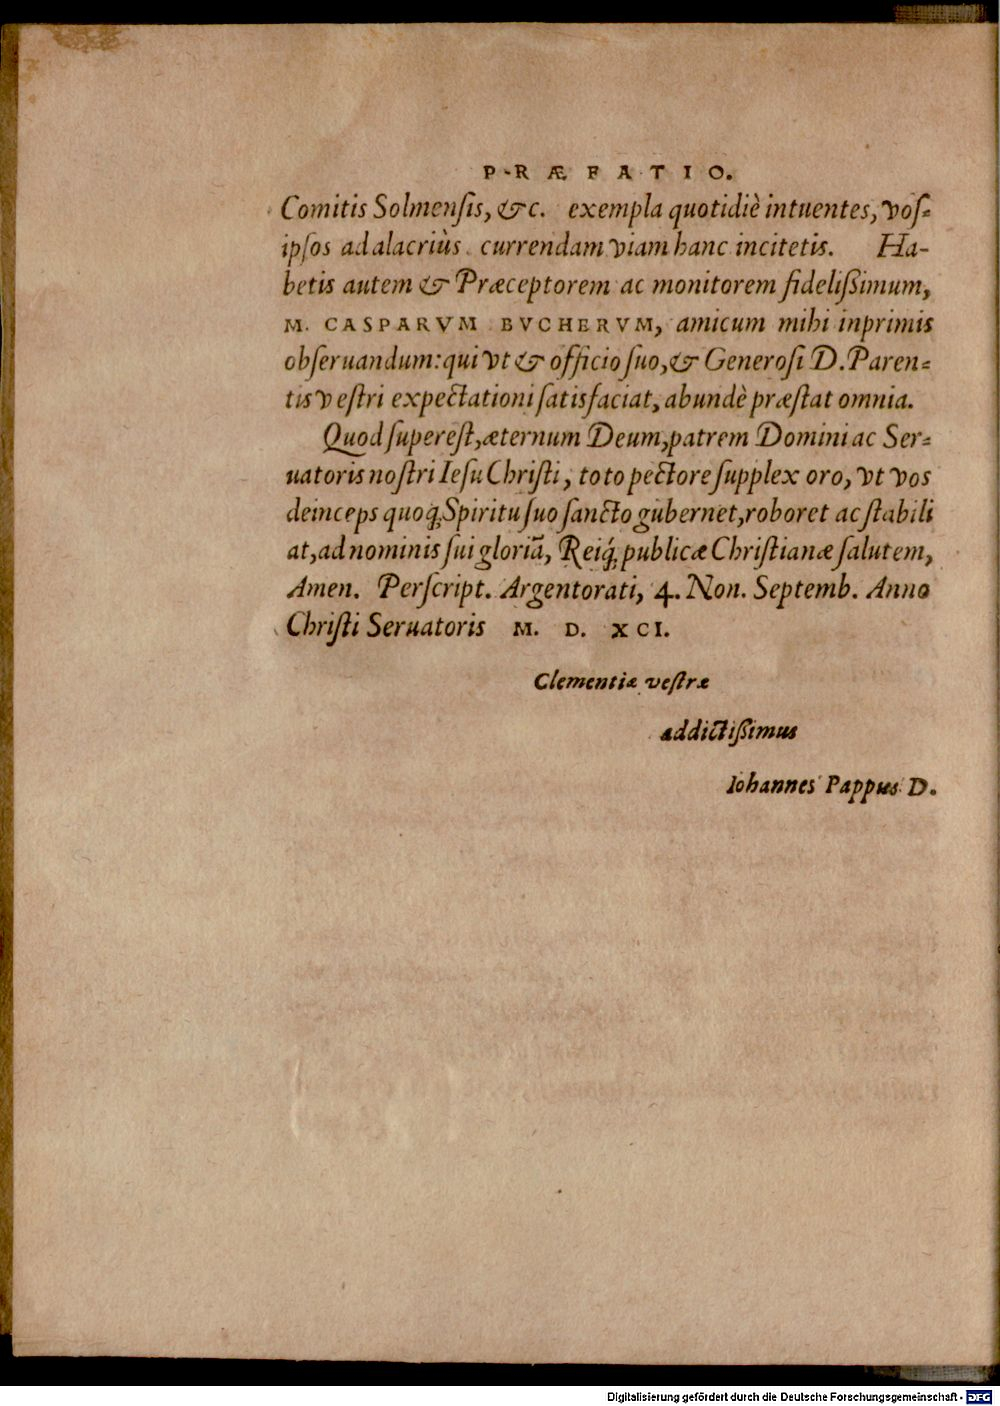 PRÆFATIO.
Comitis Solmensis, &c. exempla quotidiè intuentes, vos-
ipsos ad alacriùs currendam viam hanc incitetis. Ha-
betis autem & Præceptorem ac monitorem fidelißimum,
M. CASPARVM BVCHERVM, amicum mihi inprimis
obseruandum: qui vt & officio suo, & Generosi D. Paren-
tis vestri expectationi satisfaciat, abundè præstat omnia.
Quod superest, æternum Deum, patrem Domini ac Ser-
uatoris nostri Iesu Christi, toto pectore supplex oro, vt vos
deinceps quoq́; Spiritu suo sancto gubernet, roboret ac stabili
at, ad nominis sui gloriã, Reiq́; publicæ Christianæ salutem,
Amen. Perscript. Argentorati, 4. Non. Septemb. Anno
Christi Seruatoris M. D. XCI.
Clementiæ vestræ
addictißimus
Iohannes Pappus D.
Digitalisierung gefördert durch die Deutsche Forschungsgemeinschaft - DFG